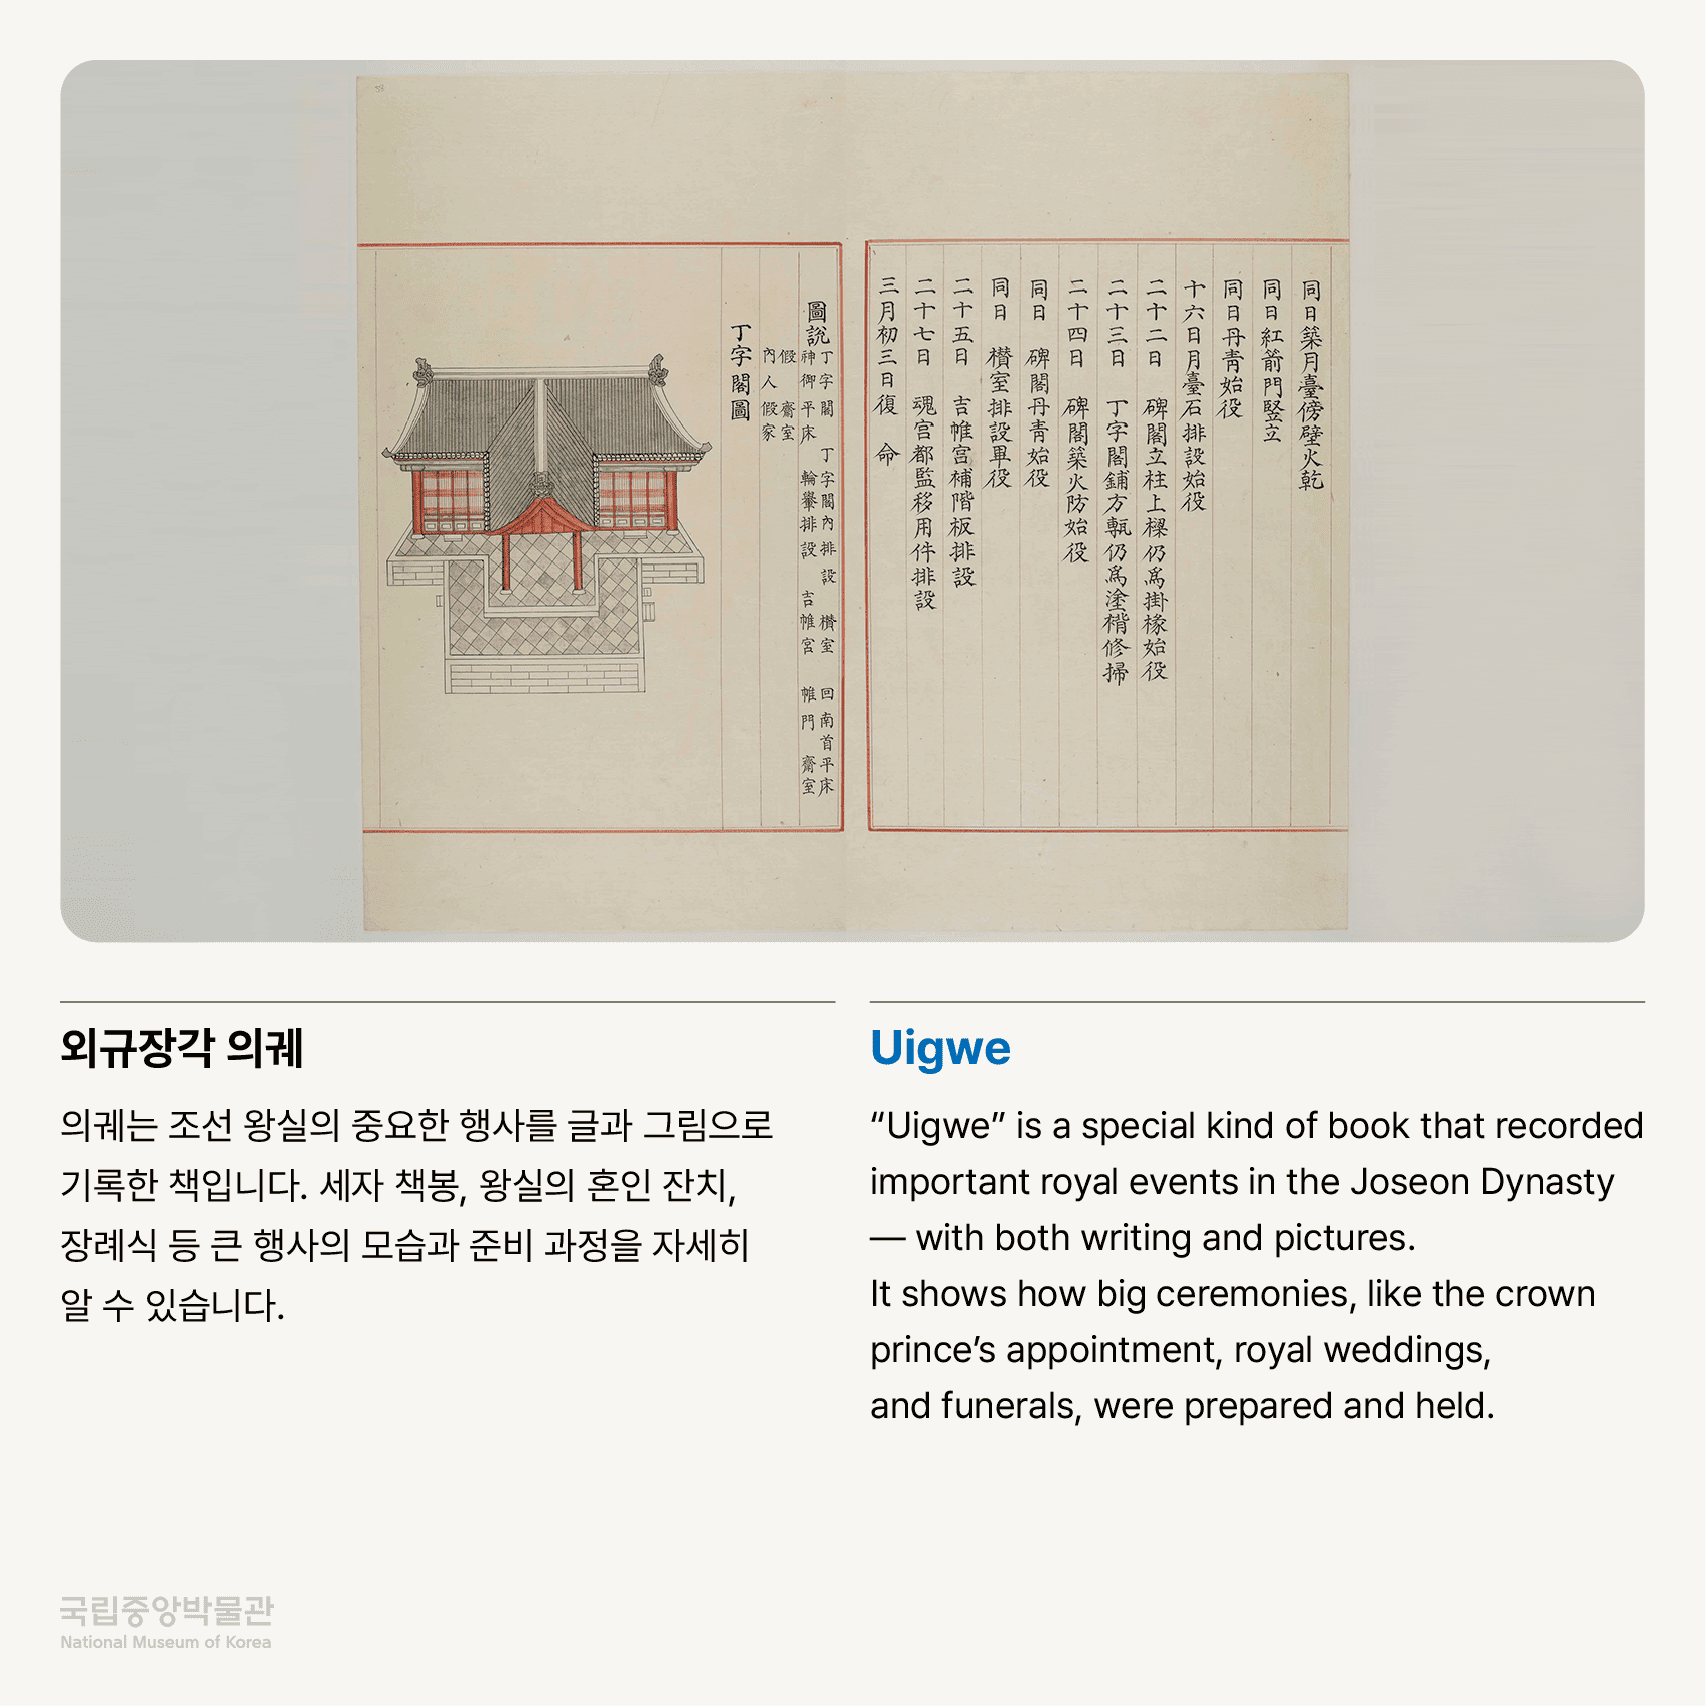 同日築月臺傍壁火乾
同日紅箭門竪立
同日丹靑始役
十六日月臺石排設始役
二十二日 碑閣立柱上樑仍爲掛椽始役
二十三日 丁字閣鋪方甎仍爲塗褙修掃
二十四日 碑閣築火防始役
同日 碑閣丹靑始役
同日 欑室排設畢役
二十五日 吉帷宮補階板排設
二十七日 魂宮都監移用件排設
三月初三日復 命
圖說
丁字閣 丁字閣內排設 欑室 回南首平床
神御平床 輪轝排設 吉帷宮 帷門 齋室
假齋室
內人假家
丁字閣圖
외규장각 의궤
의궤는 조선 왕실의 중요한 행사를 글과 그림으로
기록한 책입니다. 세자 책봉, 왕실의 혼인 잔치,
장례식 등 큰 행사의 모습과 준비 과정을 자세히
알 수 있습니다.
Uigwe
“Uigwe” is a special kind of book that recorded
important royal events in the Joseon Dynasty
— with both writing and pictures.
It shows how big ceremonies, like the crown
prince’s appointment, royal weddings,
and funerals, were prepared and held.
국립중앙박물관
National Museum of Korea